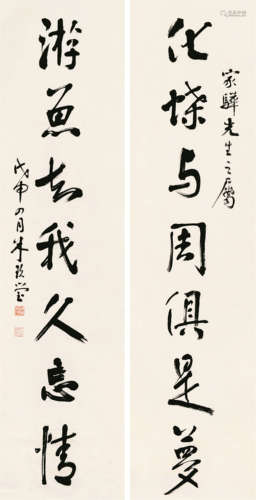 化蝶与周俱是梦
家驊先生之屬
游魚去我久忘情
戊申四月朱玖瑩